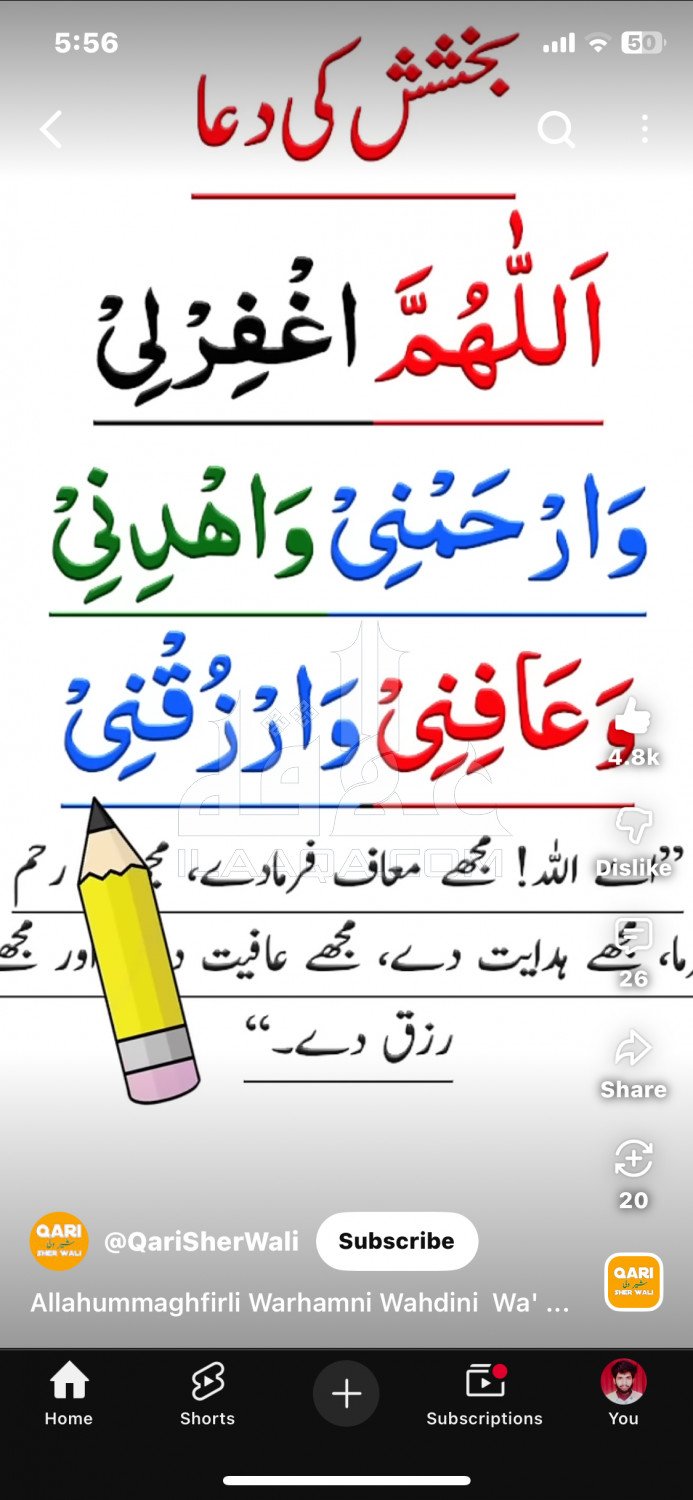 5:56
50
بخشش کی دعا
اَللّٰهُمَّ اغْفِرْلِیْ
وَارْحَمْنِیْ وَاهْدِنِیْ
وَعَافِنِیْ وَارْزُقْنِیْ
4.8k
ILAAQA.COM
”اے اللہ! مجھے معاف فرمادے، رحم
Dislike
مجھے ہدایت دے، مجھے عافیت اور
26
رزق دے۔“
Share
20
QARI
SHER WALI
@QariSherWali
Subscribe
QARI
SHER WALI
Allahummaghfirli Warhamni Wahdini Wa' ...
Home
Shorts
Subscriptions
You